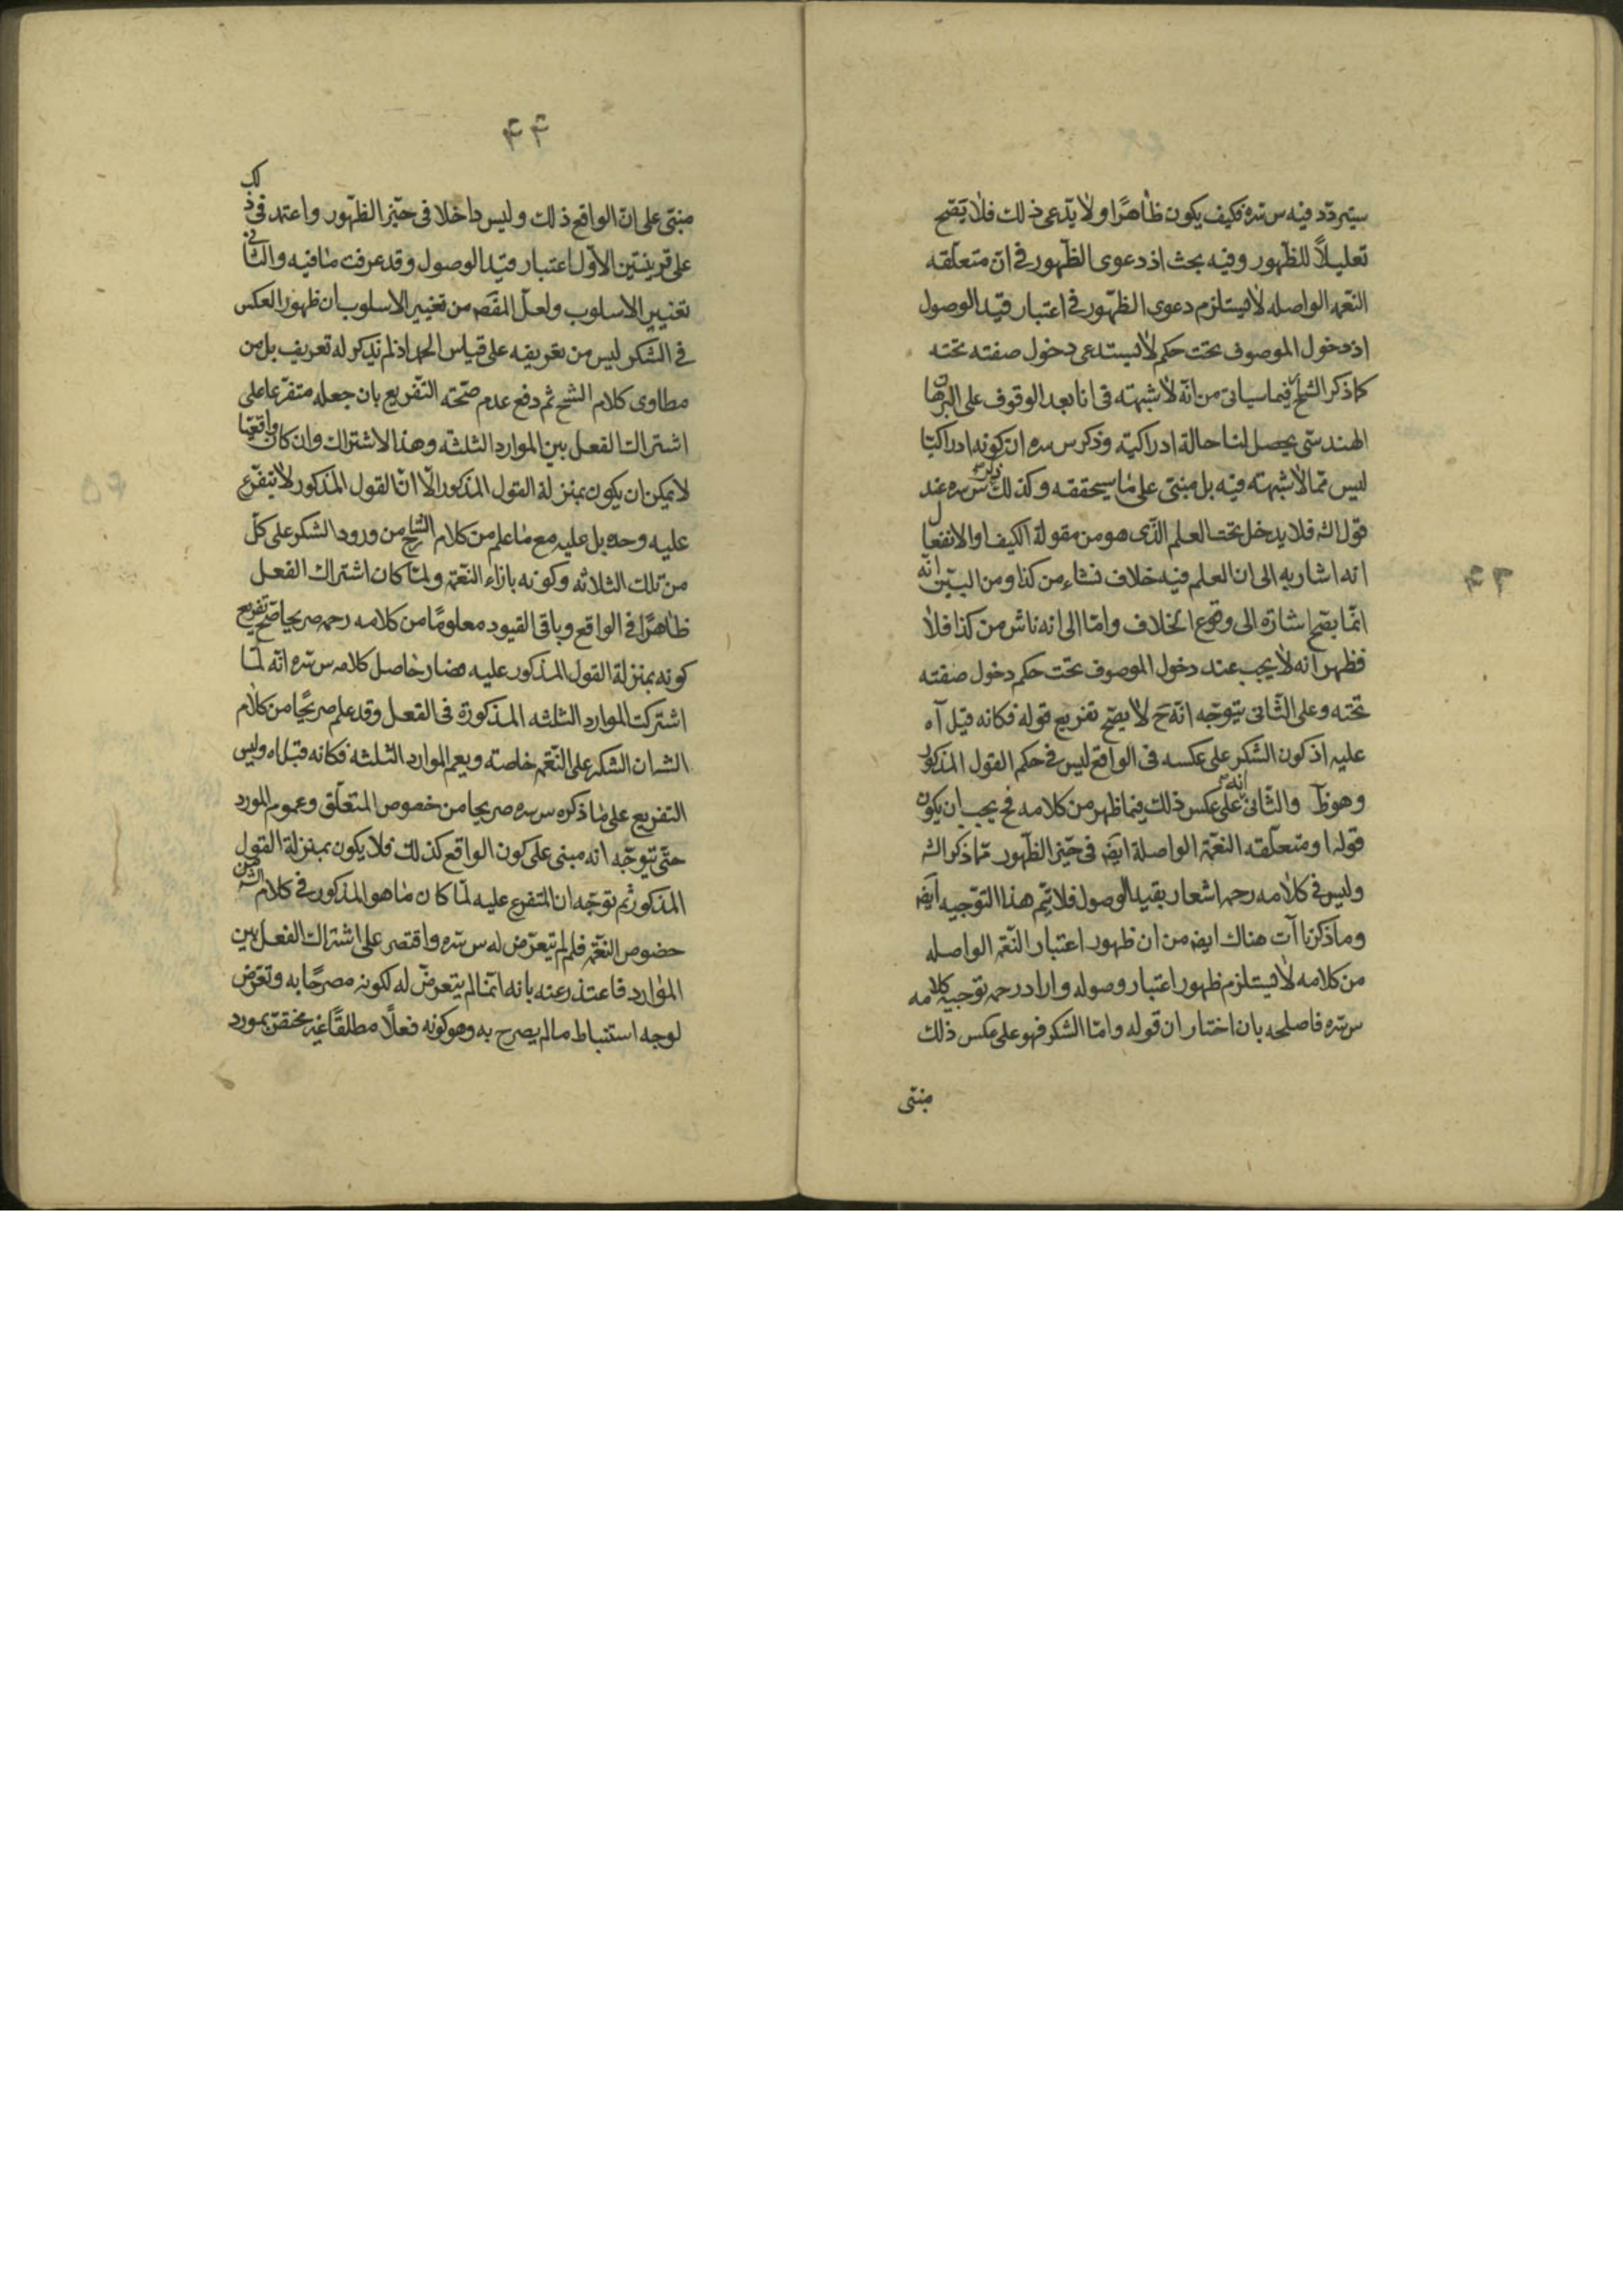 سيتردد فيه س سره فكيف يكون ظاهرًا ولا يدعى ذلك فلا يصح
تعليلًا للظهور وفيه بحث اذ دعوى الظهور فى ان متعلقه
النعمة الواصله لا يستلزم دعوى الظهور فى اعتبار قيد الوصول
اذ دخول الموصوف تحت حكم لا يستدعى دخول صفته تحته
كما ذكر الشارح فيما سياتى من انه لا شبهته فى انا بعد الوقوف على البرهان
الهندسى يحصل لنا حالة ادراكية وذكر س سره ان كونه ادراكيا
ليس مما لا شبهته فيه بل مبنى على ما سيحققه وكذلك ذكر س سره عند
قول الش فلا يدخل تحت العلم الذى هو من مقولة الكيف او الانفعال
انه اشار به الى ان العلم فيه خلاف نشاء من كذا ومن البين انه
انما يصح اشارة الى وقوع الخلاف واما الى انه ناش من كذا فلا
فظهر انه لا يجب عند دخول الموصوف تحت حكم دخول صفته
تحته وعلى الثانى يتوجه انه ح لا يصح تفريع قوله فكانه قيل آه
عليه اذ كون الشكر على عكسه فى الواقع ليس فى حكم القول المذكور
وهو ظ والثانى انه على عكس ذلك فيما ظهر من كلامه فح يجب ان يكون
قوله او متعلقه النعمة الواصلة ايضه فى حيز الظهور مما ذكر الش
وليس فى كلامه رحمه اشعار بقيد الوصول فلا يتم هذا التوجيه ايضه
وما ذكرنا آت هناك ايضه من ان ظهور اعتبار النعمة الواصله
من كلامه لا يستلزم ظهور اعتبار وصوله واراد رحمه توجيه كلامه
س سره فاصلحه بان اختار ان قوله واما الشكر فهو على عكس ذلك
مبنى
٤٣
٤٤
مبنى على ان الواقع ذلك وليس داخلا فى حيز الظهور واعتمد فى ذلك
على قرينتين الاول اعتبار قيد الوصول وقد عرفت ما فيه والثانى
تغيير الاسلوب ولعل المقصه من تغيير الاسلوب ان ظهور العكس
فى الشكر ليس من تعريفه على قياس الحمد اذ لم يذكر له تعريف بل من
مطاوى كلام الشيخ ثم دفع عدم صحته التفريع بان جعله متفرعا على
اشتراك الفعل بين الموارد الثلثة وهذا الاشتراك وان كان واقعيا
لا يمكن ان يكون بمنزلة القول المذكور الا ان القول المذكور لا يتفرع
عليه وحده بل عليه مع ما علم من كلام الشارح من ورود الشكر على كل
من تلك الثلاثه وكونه بازاء النعمة ولما كان اشتراك الفعل
ظاهرًا فى الواقع وباقى القيود معلومًا من كلامه رحمه صريحا صح تفريع
كونه بمنزلة القول المذكور عليه فصار حاصل كلامه س سره انه لما
اشتركت الموارد الثلثه المذكورة فى الفعل وقد علم صريحًا من كلام
الش ان الشكر على النعمة خاصته ويعم الموارد الثلثه فكانه قيل اه وليس
التفريع على ما ذكره س سره صريحا من خصوص المتعلق وعموم المورد
حتى يتوجه انه مبنى على كون الواقع كذلك فلا يكون بمنزلة القول
المذكور ثم توجه ان المتفرع عليه لما كان ما هو المذكور فى كلام الش من
خصوص النعمة فلم لم يتعرض له س سره واقتصر على اشتراك الفعل بين
الموارد فاعتذر عنه بانه انما لم يتعرض له لكونه مصرحًا به وتعرض
لوجه استنباط ما لم يصرح به وهو كونه فعلًا مطلقًا غير مختص بمورد